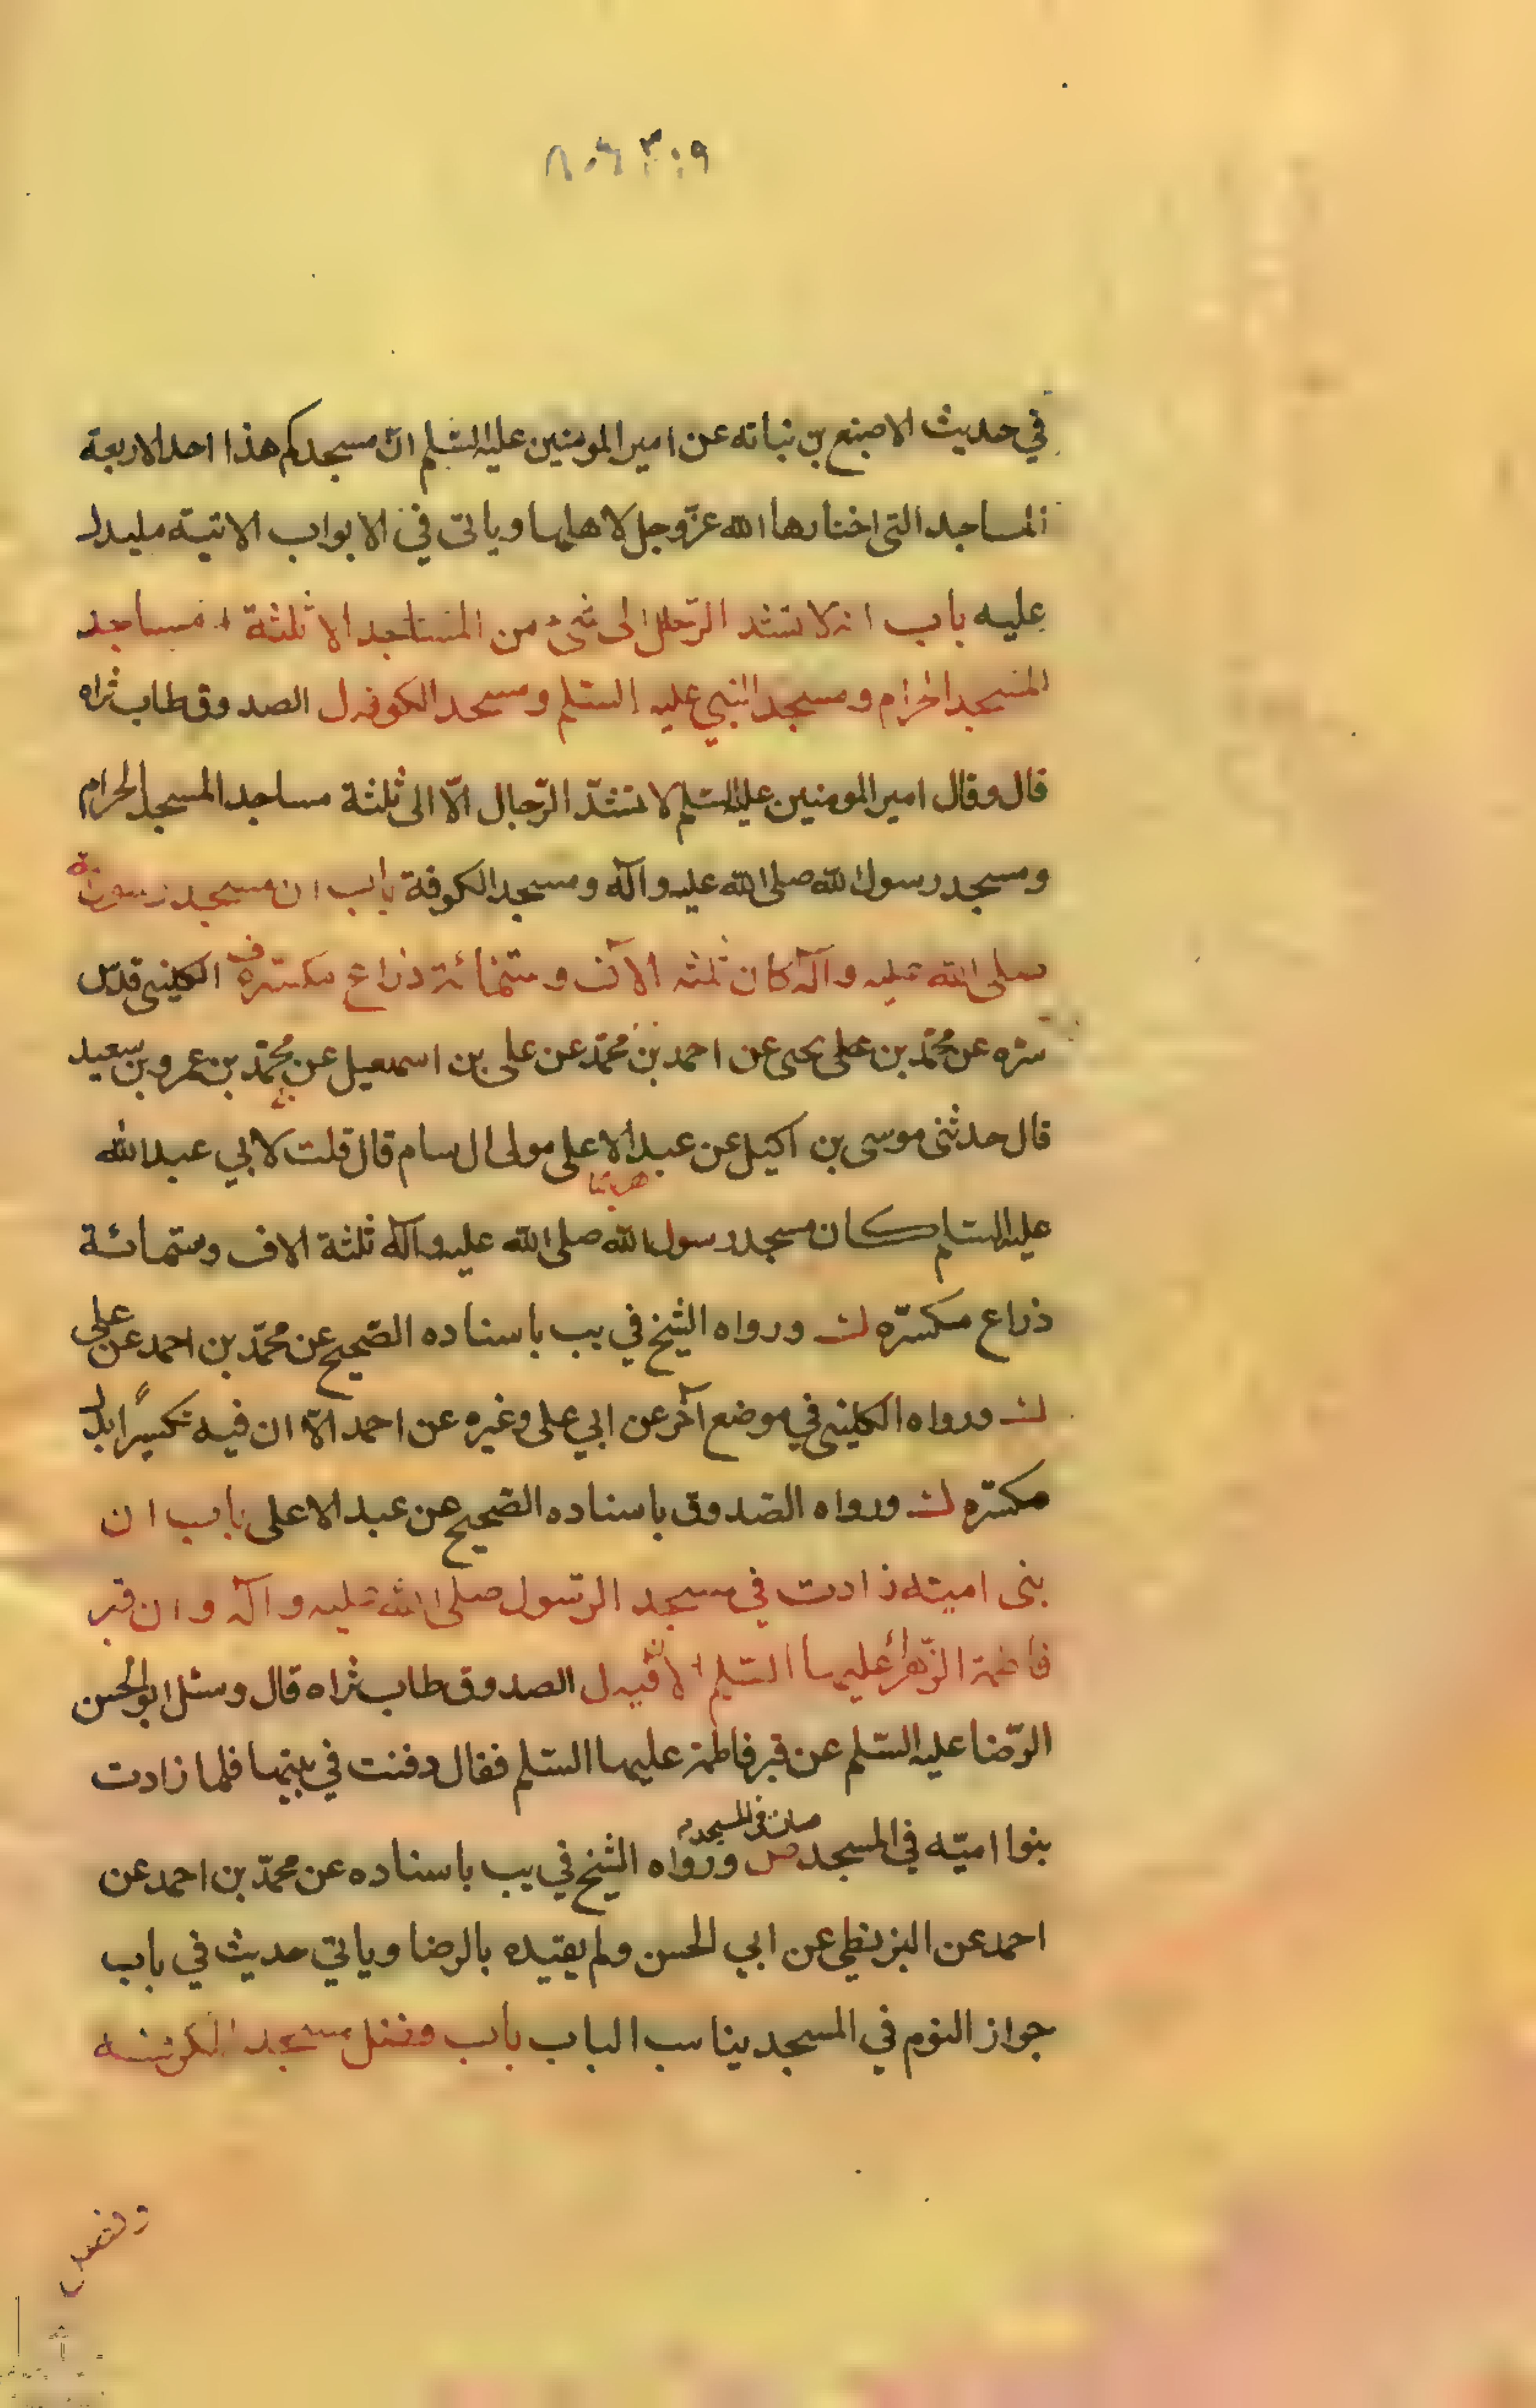 في حديث الاصبغ بن نباته عن امير المومنين عليه السّلم انّ مسجدكم هذا احد الاربعة
المساجد التى اختارها الله عزّ وجل لاهلها وياتى في الابواب الاتية ما يدل
عليه باب انه لا تشد الرّحال الى شئ من المساجد الا ثلثة مساجد
المسجد الحرام ومسجد النبي عليه السّلم ومسجد الكوفه ل الصدوق طاب ثراه
قال وقال امير المومنين عليه السّلم لا تشدّ الرّحال الّا الى ثلثة مساجد المسجد الحرام
ومسجد رسول الله صلى الله عليه وآله ومسجد الكوفة باب ان مسجد
صلى الله عليه وآله كان ثلثه الآف وستمائة ذراع مكسّره ف الكلينى قدّس
سرّه عن محمّد بن على يحيى عن احمد بن محمّد عن على بن اسمعيل عن محمّد بن عمرو بن سعيد
قال حدثنى موسى بن اكيل عن عبد الاعلى مولى ال سام قال قلت لابي عبد الله
عليه السّلم كان مسجد رسول الله صلى الله عليه وآله ثلثة الاف وستمائة
ذراع مكسّره لث ورواه الشيخ في يب باسناده الصّحيح عن محمّد بن احمد عن على
لث ورواه الكلينى في موضع آخر عن ابي على وغيره عن احمد الّا ان فيه تكسيرًا بدل
مكسّره لث ورواه الصّدوق باسناده الصّحيح عن عبد الاعلى باب ان
بنى اميّة زادت في مسجد الرّسول صلى الله عليه وآله وان قبر
فاطمة الزّهرا عليها السّلم الآن فيه ل الصدوق طاب ثراه قال وسئل ابو الحسن
الرّضا عليه السّلم عن قبر فاطمة عليها السّلم فقال دفنت في بيتها فلما زادت
بنوا اميّه في المسجد صارت في المسجد ورواه الشيخ في يب باسناده عن محمّد بن احمد عن
احمد عن البزنطي عن ابي الحسن ولم يقيّده بالرضا وياتي حديث في باب
جواز النوم في المسجد يناسب الباب باب وفضل مسجد الكوفة